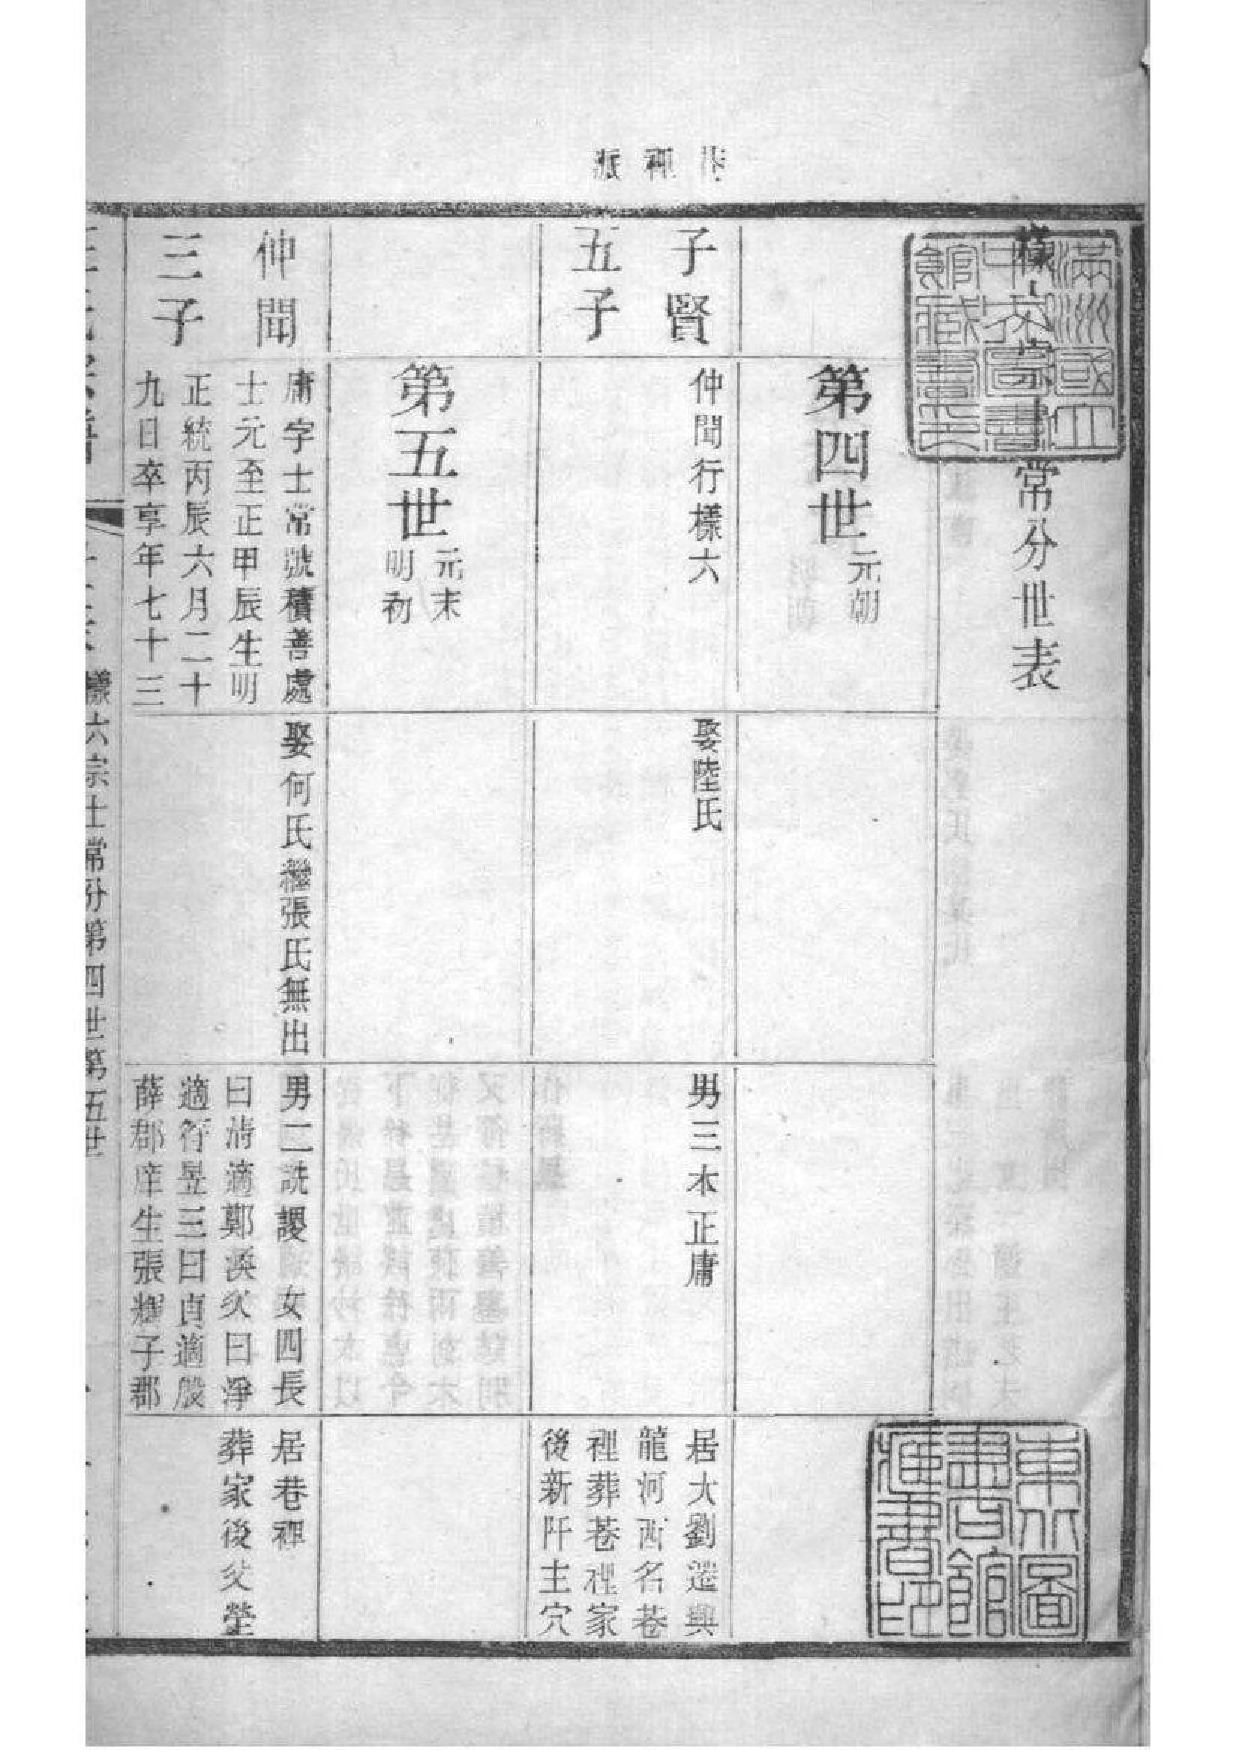 巷裡派
樣六宗士常分世表
滿洲國立
中央圖書
館藏書印
第四世
元朝
子賢
五子
仲聞行樣六
娶陸氏
男三本正庸
居大劉遷興
龍河西名巷
裡葬巷裡家
後新阡主穴
第五世
元末
明初
仲聞
三子
庸字士常號積善處
士元至正甲辰生明
正統丙辰六月二十
九日卒享年七十三
娶何氏繼張氏無出
男二詵謖 女四長
曰清適鄭渙次曰淨
適行昱三曰貞適殷
薛郡庠生張耀子郡
居巷裡
葬家後父塋
樣六宗士常分第四世第五世
東北圖
書館